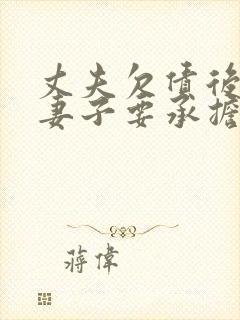 丈夫欠债後
妻子要承擔
蒋偉